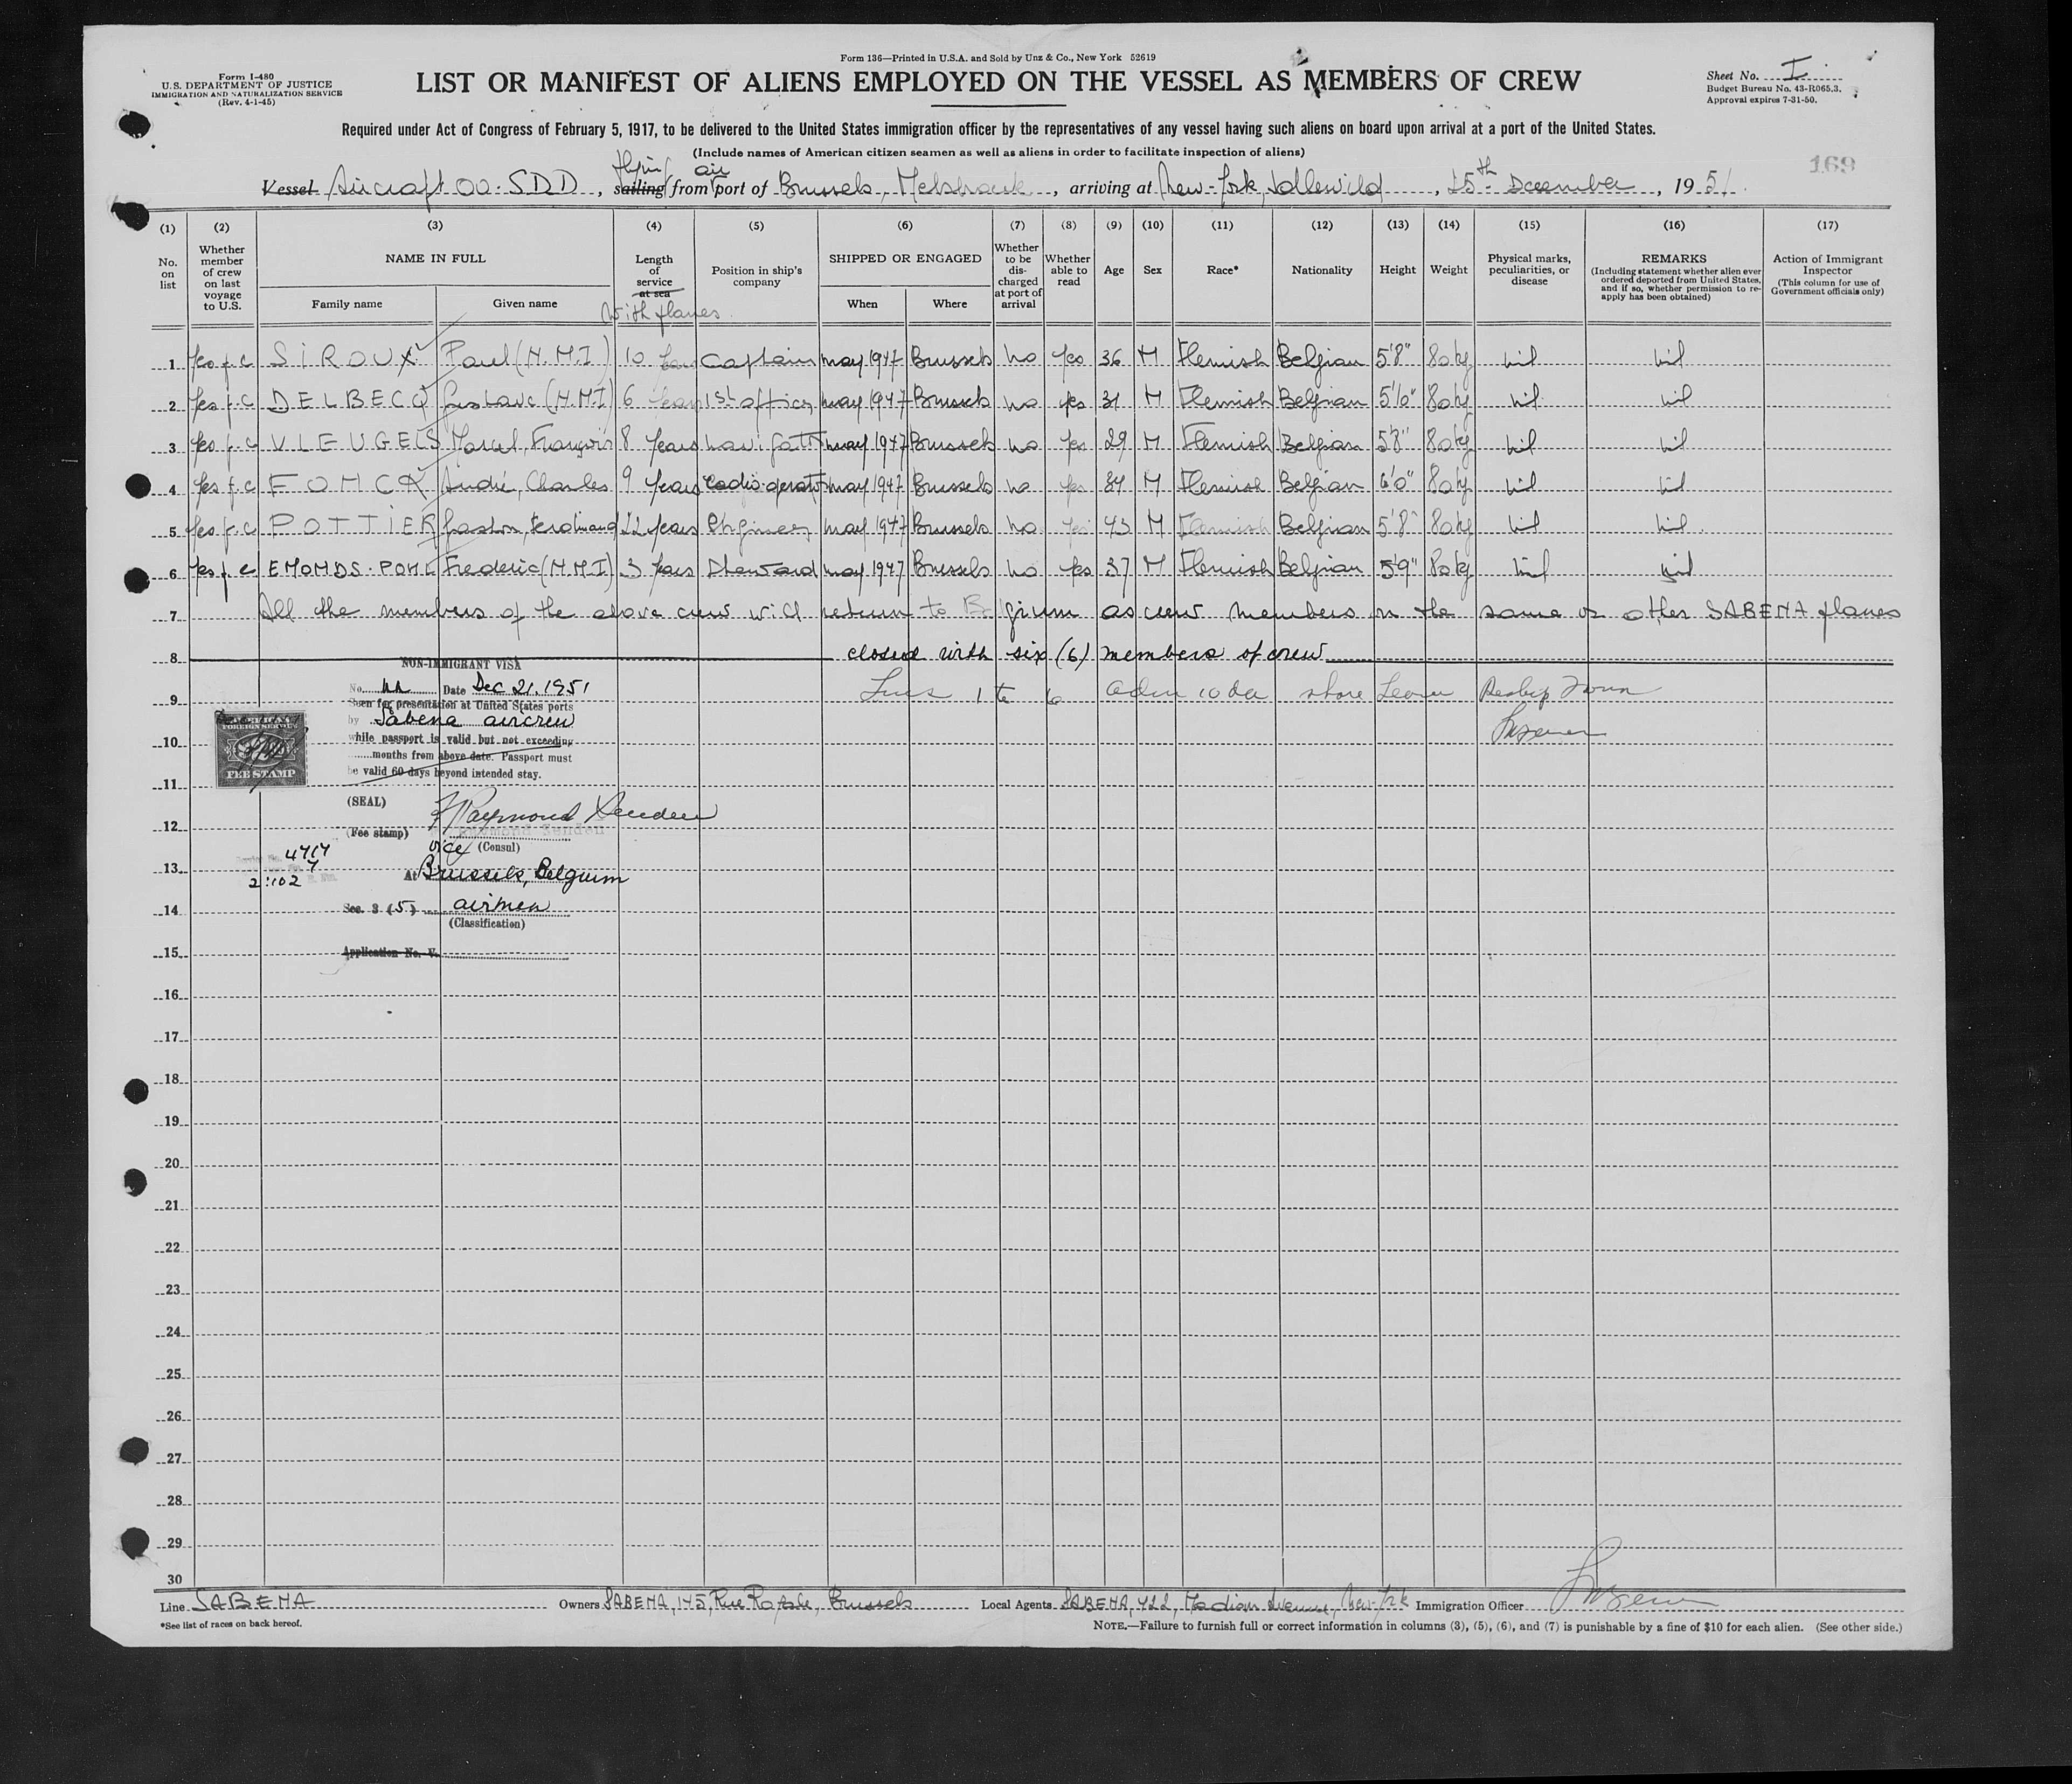 Form 136—Printed in U.S.A. and Sold by Unz & Co., New York 52619
Form I-480
U.S. DEPARTMENT OF JUSTICE
IMMIGRATION AND NATURALIZATION SERVICE
(Rev. 4-1-45)
LIST OR MANIFEST OF ALIENS EMPLOYED ON THE VESSEL AS MEMBERS OF CREW
Sheet No. I
Budget Bureau No. 43-R065.3.
Approval expires 7-31-50.
Required under Act of Congress of February 5, 1917, to be delivered to the United States immigration officer by the representatives of any vessel having such aliens on board upon arrival at a port of the United States.
(Include names of American citizen seamen as well as aliens in order to facilitate inspection of aliens)
169
flying air
Vessel Aircraft OO-SDD, sailing from port of Brussels, Melsbroek, arriving at New-York, Idlewild, 25th December, 1951.
(1) (2) (3) (4) (5) (6) (7) (8) (9) (10) (11) (12) (13) (14) (15) (16) (17)
No. on list
Whether member of crew on last voyage to U.S.
NAME IN FULL
Family name Given name
Length of service at sea
With planes
Position in ship's company
SHIPPED OR ENGAGED
When Where
Whether to be discharged at port of arrival
Whether able to read
Age Sex Race* Nationality Height Weight
Physical marks, peculiarities, or disease
REMARKS
(Including statement whether alien ever ordered deported from United States, and if so, whether permission to reapply has been obtained)
Action of Immigrant Inspector
(This column for use of Government officials only)
1 Yes f.c SIROUX Paul (N.M.I) 10 Years Captain may 1947 Brussels No Yes 36 M Flemish Belgian 5'8" 80kg Nil Nil
2 Yes f.c DELBECQ Gustave (N.M.I) 6 Years 1st officer may 1947 Brussels No Yes 31 M Flemish Belgian 5'10" 80kg Nil Nil
3 Yes f.c VLEUGELS Marcel, François 8 Years Navigator may 1947 Brussels No Yes 29 M Flemish Belgian 5'8" 80kg Nil Nil
4 Yes f.c FONCK André, Charles 9 Years Radio-operator may 1947 Brussels No Yes 34 M Flemish Belgian 6'0" 80kg Nil Nil
5 Yes f.c POTTIER Gaston, Ferdinand 22 Years Engineer may 1947 Brussels No Yes 43 M Flemish Belgian 5'8" 80kg Nil Nil
6 Yes f.c EMONDS-POHL Frederic (N.M.I) 3 Years Steward may 1947 Brussels No Yes 37 M Flemish Belgian 5'9" 80kg Nil Nil
7 All the members of the above crew will return to Belgium as crew members on the same or other SABENA planes
8 closed with six (6) members of crew
NON-IMMIGRANT VISA
No. Date Dec 21. 1951
Seen for presentation at United States ports
by Sabena aircrew
while passport is valid but not exceeding
months from above date. Passport must
be valid 60 days beyond intended stay.
9 Lines 1 to 6 shore Leave
10
AMERICAN
FOREIGN SERVICE
FEE STAMP
11
(SEAL)
F Raymond Senden
12
(Fee stamp) Raymond Senden
Vice (Consul)
4717
13
At Brussels, Belgium
14
Sec. 3 (5) airmen
(Classification)
15
Application No. V.
16
17
18
19
20
21
22
23
24
25
26
27
28
29
30
Line SABENA Owners SABENA, 145, Rue Royale, Brussels Local Agents SABENA, 422, Madison Avenue, New-York Immigration Officer
*See list of races on back hereof.
NOTE.—Failure to furnish full or correct information in columns (3), (5), (6), and (7) is punishable by a fine of $10 for each alien. (See other side.)